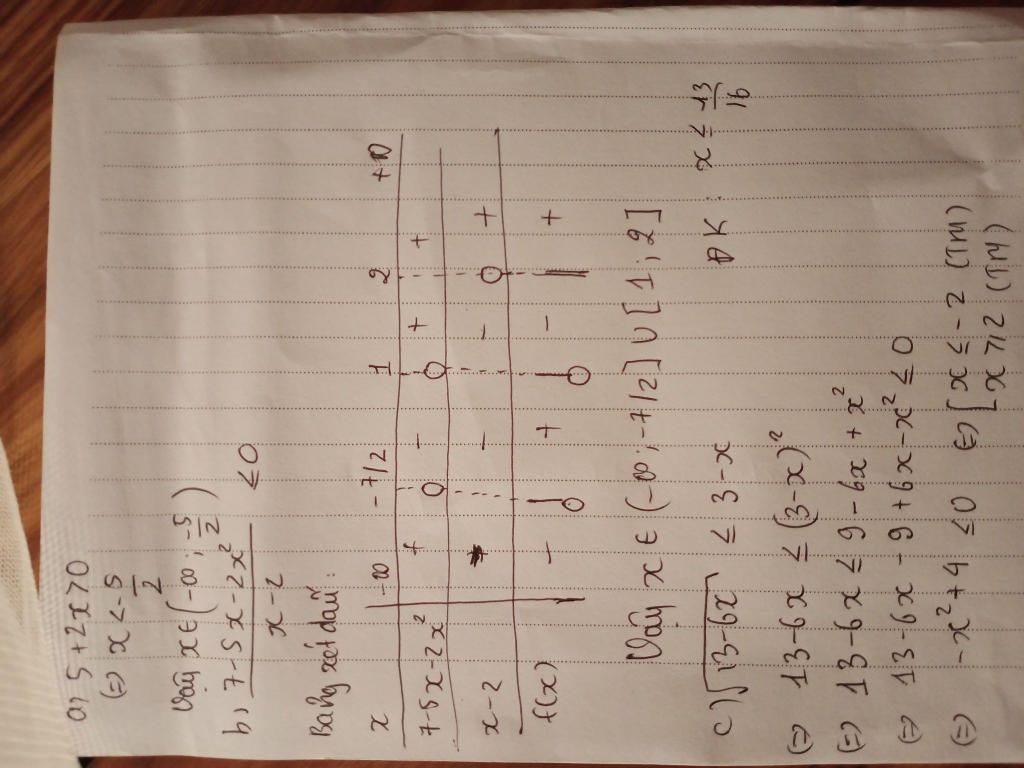 a, 5 + 2x > 0
(=) x < -5/2
Vậy x ∈ (-∞ ; -5/2)
b, (7 - 5x - 2x²)/(x - 2) ≤ 0
Bảng xét dấu:
x -∞ -7/2 1 2 +∞
7-5x-2x² + 0 - 0 + +
x-2 - - 0 +
f(x) - 0 + 0 - || +
Vậy x ∈ (-∞ ; -7/2] ∪ [1 ; 2]
c) √(13-6x) ≤ 3-x ĐK : x ≤ 13/16
(=) 13-6x ≤ (3-x)²
(=) 13-6x ≤ 9-6x+x²
(=) 13-6x-9+6x-x² ≤ 0
(=) -x²+4 ≤ 0 (=) [ x ≤ -2 (TM)
x ≥ 2 (TM)